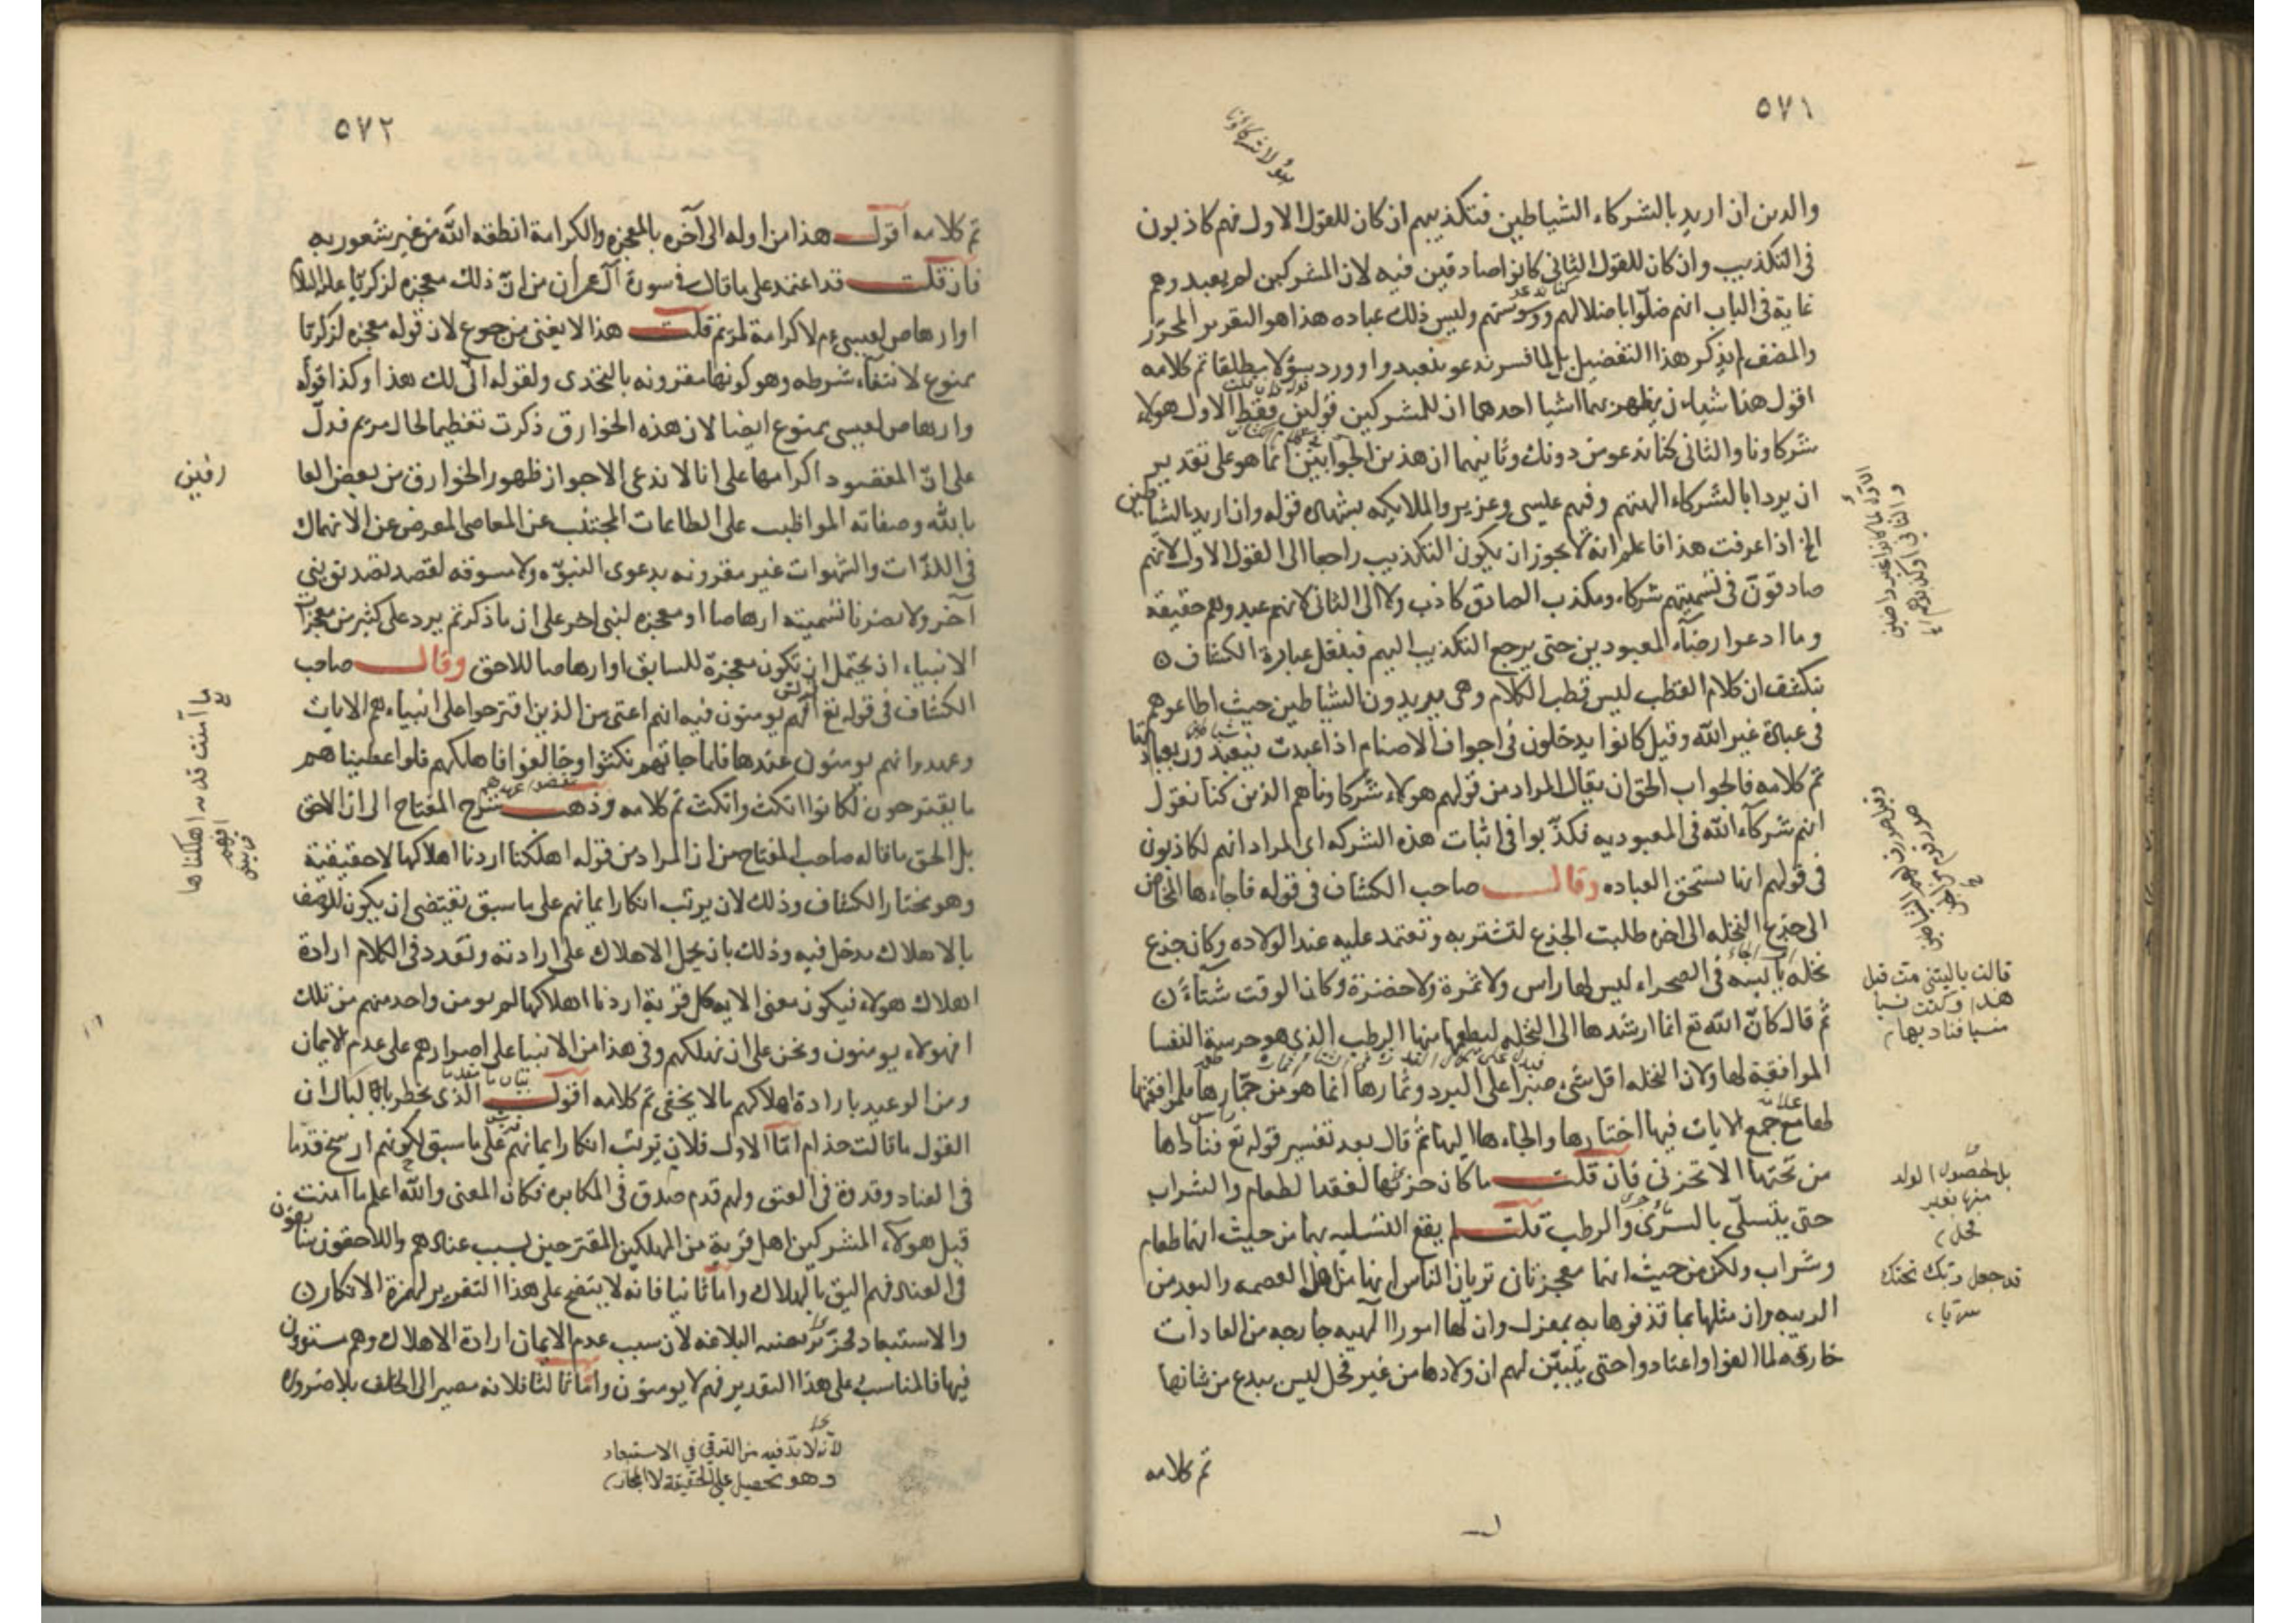 ٥٧١
هؤلاء شركاؤنا
والدين ان اريد بالشركاء الشياطين فتكذيبهم ان كان للقول الاول فهم كاذبون
فى التكذيب وان كان للقول الثانى كانوا صادقين فيه لان المشركين لم يعبدوهم
غاية فى الباب انهم ضلّوا باضلالهم ووسوستهم وليس ذلك عباده هذا هو التقرير المحرّر
والمصنف لم يذكر هذا التفصيل بل لما فسر ندعو بنعبد واورد سؤلا مطلقا تم كلامه
اقول هنا شيان يظهر بهما اشيا احدهما ان للمشركين قولين فقط الاول هولاء
شركاونا والثانى كنا ندعو من دونك وثانيهما ان هذين الجوابين انما هو على تقدير
ان يراد بالشركاء الهتهم وفهم عليسى وعزير والملايكه بشهاده قوله وان اريد بالشياطين
الخ اذا عرفت هذا فاعلم انه لا يجوز ان يكون التكذيب راجعا الى القول الاول لانهم
صادقون فى تسميتهم شركاء ومكذب الصادق كاذب ولا الى الثانى لانهم عبدوهم حقيقه
وما ادعوا رضآء المعبودين حتى يرجع التكذيب اليهم فبنقل عبارة الكشاف
ينكشف ان كلام القطب ليس قطب الكلام وهى يريدون الشياطين حيث اطاعوهم
فى عبادة غير الله وقيل كانوا يدخلون فى اجواف الاصنام اذا عبدت فيعبدون بعبادتها
تم كلامه فالجواب الحق ان يقال المراد من قولهم هولاء شركاونا هم الذين كنا نقول
انهم شركآء الله فى المعبوديه فكذّبوا فى اثبات هذه الشركه اى المراد انهم لكاذبون
فى قولهم انها تستحق العباده وقال صاحب الكشاف فى قوله فاجاءها المخاض
الى جذع النخله الى اخره طلبت الجذع لتستتر به وتعتمد عليه عند الولاده وكان جذع
نخله يابسه فى الصحراء ليس لها راس ولا ثمرة ولا خضرة وكان الوقت شتآء
ثم قال كانّ الله تع انما ارشدها الى النخله ليطعمها منها الرطب الذى هو خرسة النفسا
الموافقة لها ولان النخله اقل شىء صبرا على البرد وثمارها انما هو من جمّارها فلموافقتها
لها مع جمع الايات فيها اختارها والجاءها اليها ثم قال بعد تفسير قوله تع فناداها
من تحتها الا تحزنى فان قلت ما كان حزنها لفقد الطعام والشراب
حتى يتسلّى بالسرىّ والرطب قلت لم يقع التسليه بهما من حيث انهما طعام
وشراب ولكن من حيث انهما معجزتان تريان الناس انها من اهل العصمه والبعد من
الريبه وان مثلها مما قذفوها به بمعزل وان لها امورا الهيه خارجه من العادات
خارقه لما الفوا واعتادوا حتى يتبيّن لهم ان ولادها من غير فحل ليس ببدع من شانها
تم كلامه
قالت ياليتنى مت قبل
هذا وكنت نسيا
منسيا فناديها
بل لحصول الولد
منها بغير
فحل
قد جعل ربك تحتك
سريا
٥٧٢
تم كلامه اقول هذا من اوله الى آخره بالمعجزه والكرامة انطقه الله من غير شعور به
فان قلت قد اعتمد على ما قال فى سورة آل عمران من انّ ذلك معجزه لزكريّا عليه السلام
اوارهاص لعيسى عم لا كرامة لمريم قلت هذا لا يغنى من جوع لان قوله معجزه لزكريا
ممنوع لانتفاء شرطه وهو كونها مقرونه بالتحدى ولقوله انّى لك هذا وكذا قوله
وارهاص لعيسى ممنوع ايضا لان هذه الخوارق ذكرت تعظيما لحال مريم فدلّ
على انّ المقصود اكرامها على انا لا ندعى الا جواز ظهور الخوارق من بعض العا
رفين
بالله وصفاته المواظب على الطاعات المجتنب عن المعاصى المعرض عن الانهماك
فى اللذّات والشهوات غير مقرونه بدعوى النبوّه ولا مسوقه لقصد تصديق نبى
آخر ولا يضرنا تسميته ارهاصا او معجزه لنبى اخر على ان ما ذكرتم يرد على كثير من معجزات
الانبياء اذ يحتمل ان تكون معجزة للسابق اوارهاصا للاحق وقال صاحب
الكشاف فى قوله تع افهم يومنون فيه انهم اعتى من الذين اقترحوا على انبياءهم الايات
وعهدوا انهم يومنون عندها فلما جاتهم نكثوا وخالفوا فاهلكهم فلو اعطيناهم
ما يقترحون لكانوا انكث وانكث تم كلامه وذهب شرح المفتاح الى ان الاحق
بل الحق ما قاله صاحب المفتاح من ان المراد من قوله اهلكنا اردنا اهلاكها لا حقيقية
وهو مختار الكشاف وذلك لان يرتب انكار ايمانهم على ما سبق يقتضى ان يكون للوصف
بالاهلاك مدخل فيه وذلك بان يحل الاهلاك على ارادته وتقدر فى الكلام ارادة
اهلاك هولاء فيكون معنى الايه كل قرية اردنا اهلاكها لم يومن واحد منهم من تلك
افهولاء يومنون ونحن على ان نهلكهم وفى هذا من الانبيا على اصرارهم على عدم الايمان
ومن الوعيد بارادة اهلاكهم ما لا يخفى تم كلامه اقول الذى يخطر بالبال ان
القول ما قالت حذام امّا الاول فلان يرتب انكار ايمانهم على ما سبق لكونهم ارسخ قدما
فى العناد وقدوة فى العتق ولهم قدم صدق فى المكابره فكان المعنى والله اعلم ما امنت
قبل هولآء المشركين اهل قرية من المهلكين المقترحين بسبب عنادهم واللاحقون سابقون
فى العناد فهم اليق بالهلاك واما ثانيا فانه لا يتضح على هذا التقرير لهمزة الانكار
والاستبعاد لان سبب عدم الايمان ارادة الاهلاك وهم مستوون
فيها فالمناسب على هذا التقدير فهم لا يومنون واما ثالثا فلانه مصير الى الحلف بلا ضروره
لانه لا بد فيه من الترقى فى الاستبعاد
وهو تحصيل على الحقيقة لا المجاز
ما آمنت قبلهم من قرية اهلكناها
افهم